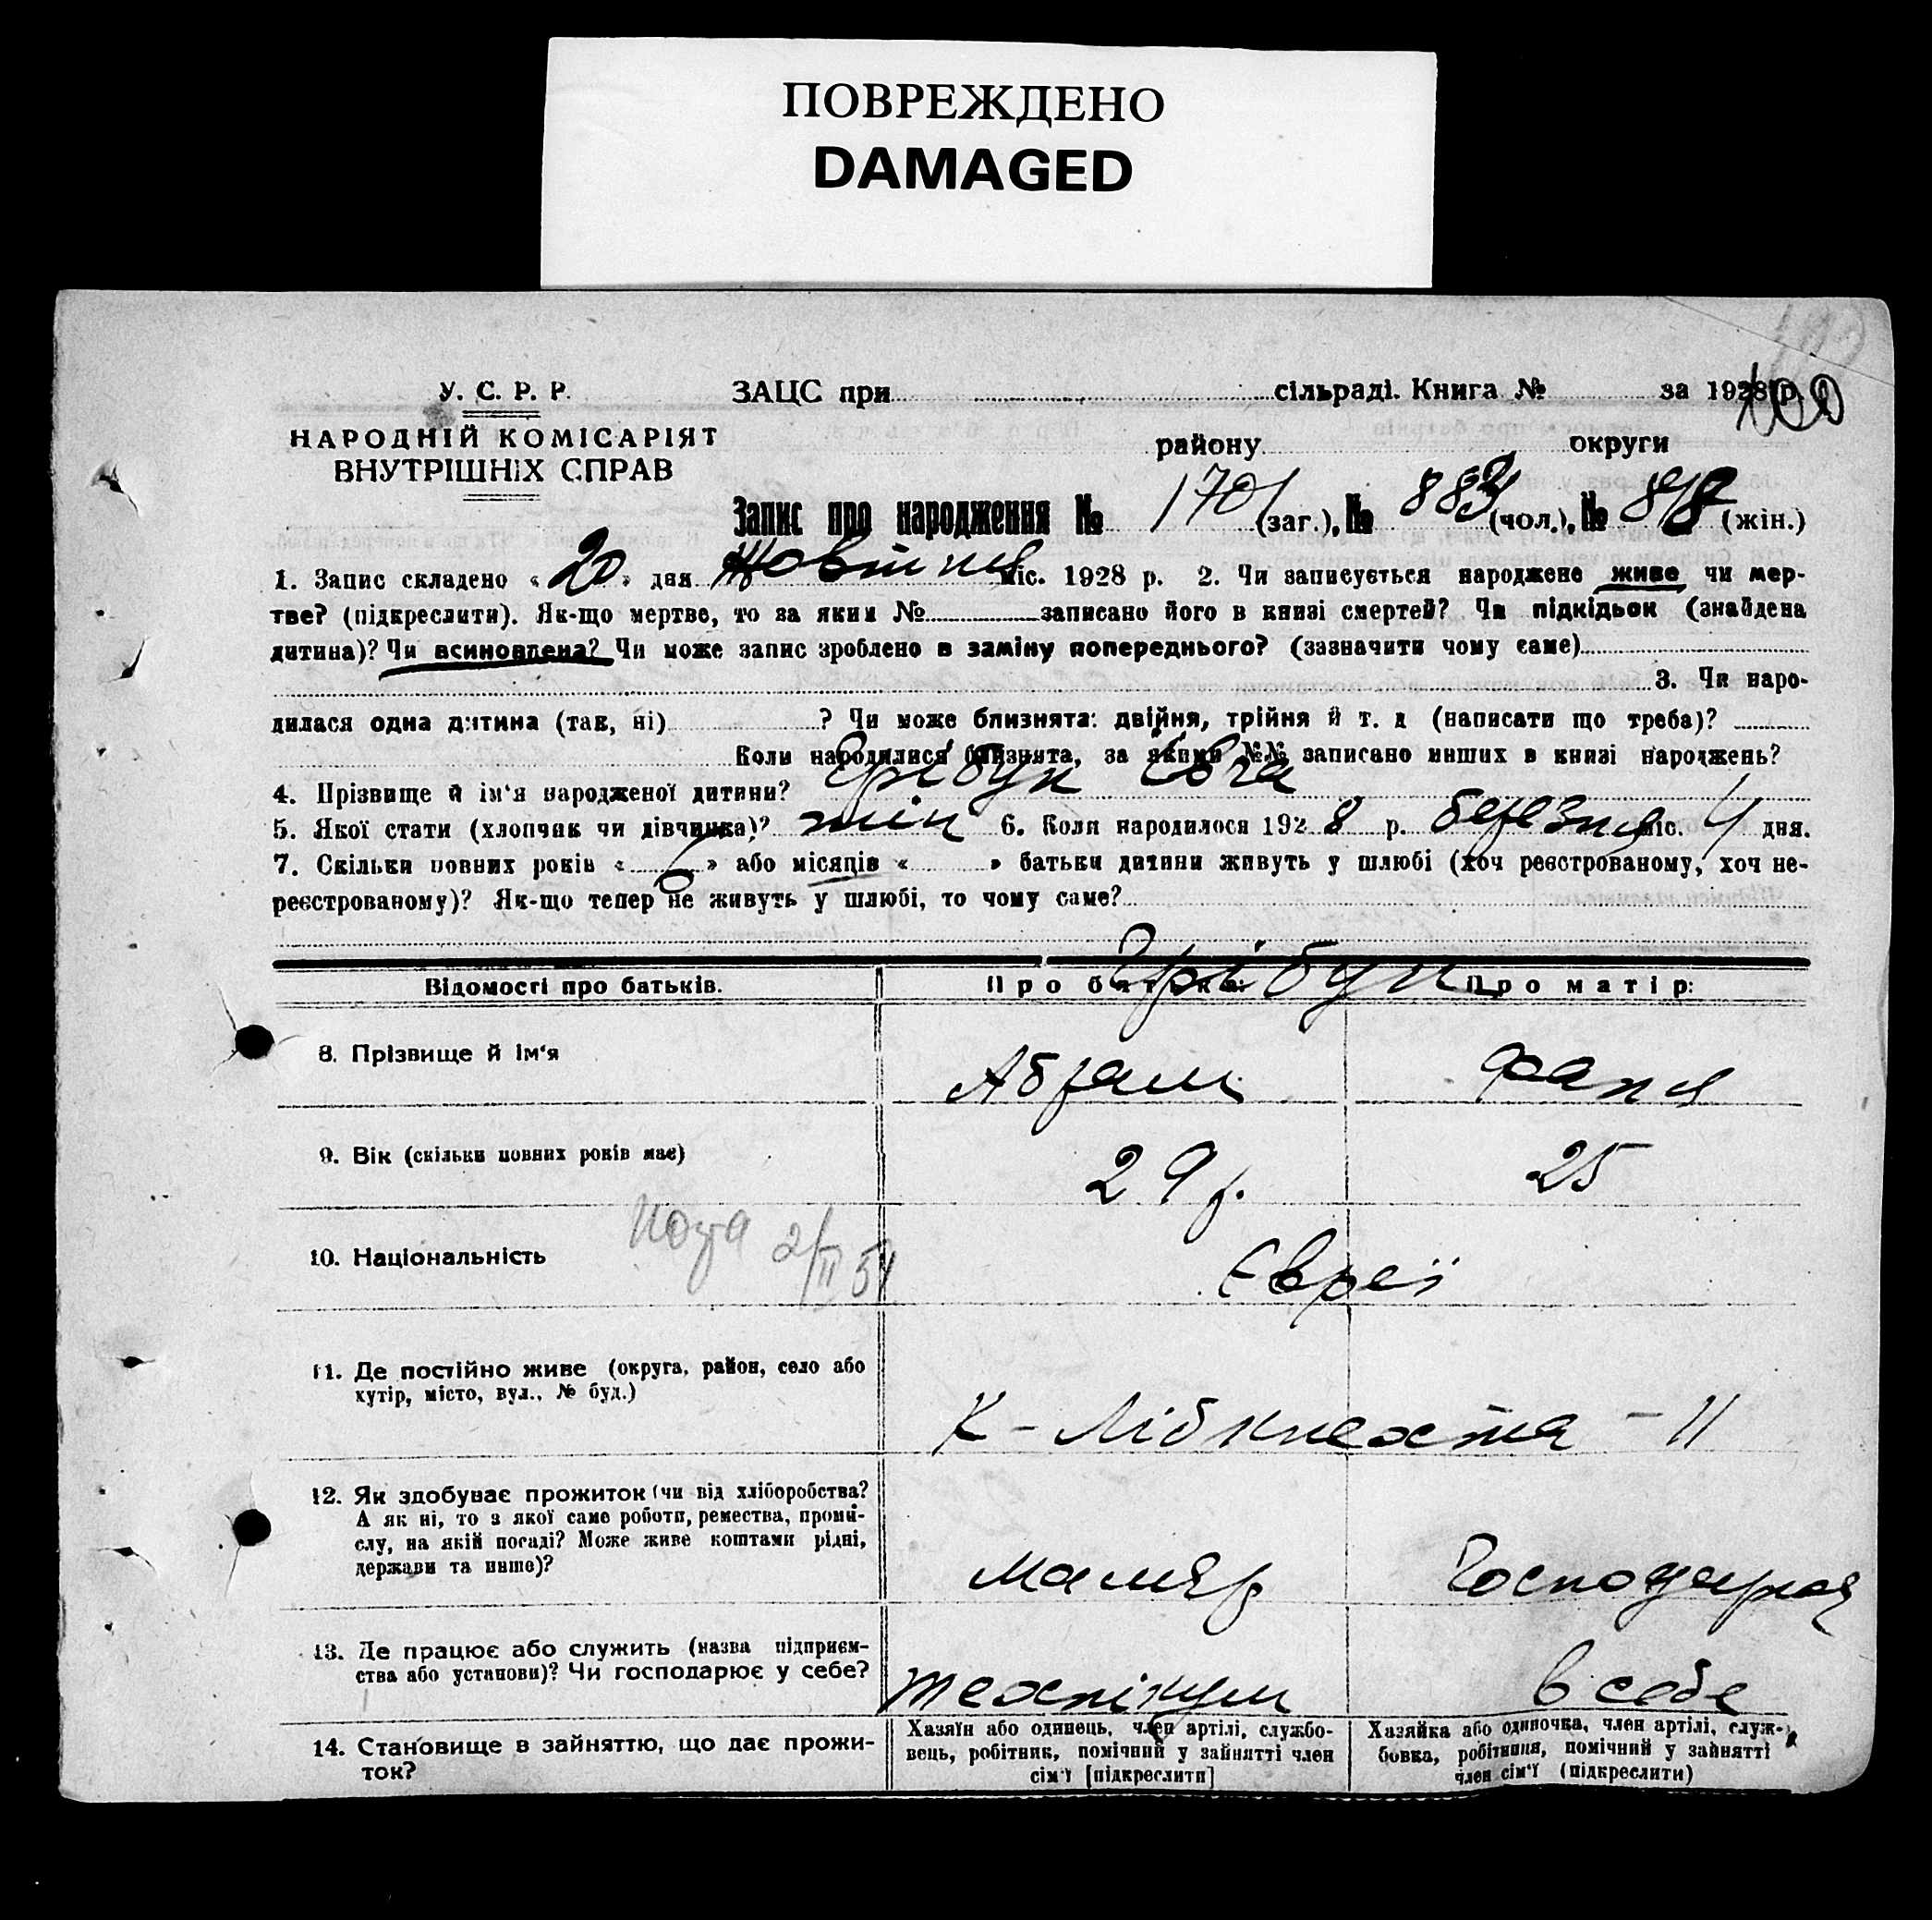 ПОВРЕЖДЕНО
DAMAGED
100
У. С. Р. Р.
НАРОДНІЙ КОМІСАРІЯТ
ВНУТРІШНІХ СПРАВ
ЗАЦС при сільраді. Книга № за 1928 р.
району округи
Запис про народження № 1701 (заг.), № 883 (чол.), № 818 (жін.)
1. Запис складено « 20 » дня Жовтня міс. 1928 р. 2. Чи записується народжене живе чи мер-
тве? (підкреслити). Як-що мертве, то за яким № записано його в книзі смертей? Чи підкідьок (знайдена
дитина)? Чи всиновлена? Чи може запис зроблено в заміну попереднього? (зазначити чому саме)
3. Чи наро-
дилася одна дитина (так, ні) ? Чи може близнята: двійня, трійня й т. д (написати що треба)?
Коли народилися близнята, за якими №№ записано инших в книзі народжень?
4. Прізвище й ім'я народженої дитини? Грібун Єва
5. Якої стати (хлопчик чи дівчинка)? жін 6. Коли народилося 1928 р. березня міс. 4 дня.
7. Скільки повних років « » або місяців « » батьки дитини живуть у шлюбі (хоч реєстрованому, хоч не-
реєстрованому)? Як-що тепер не живуть у шлюбі, то чому саме?
Відомості про батьків. Про батька: Про матір:
Грібун
8. Прізвище й ім'я Абрам Фаня
9. Вік (скільки повних років має) 29 р. 25
10. Національність Євреї
2/II 51
11. Де постійно живе (округа, район, село або
хутір, місто, вул., № буд.)
К-Лібкнехта - 11
12. Як здобуває прожиток (чи від хліборобства?
А як ні, то з якої саме роботи, ремества, проми-
слу, на якій посаді? Може живе коштами рідні,
держави та инше)?
маляр Господарка
13. Де працює або служить (назва підприєм-
ства або установи)? Чи господарює у себе?
техпікум в себе
14. Становище в зайняттю, що дає прожи-
ток?
Хазяїн або одинець, член артілі, службо-
вець, робітник, помічний у зайнятті член
сім'ї [підкреслити]
Хазяйка або одиночка, член артілі, служ-
бовка, робітниця, помічний у зайнятті
член сім'ї (підкреслити)